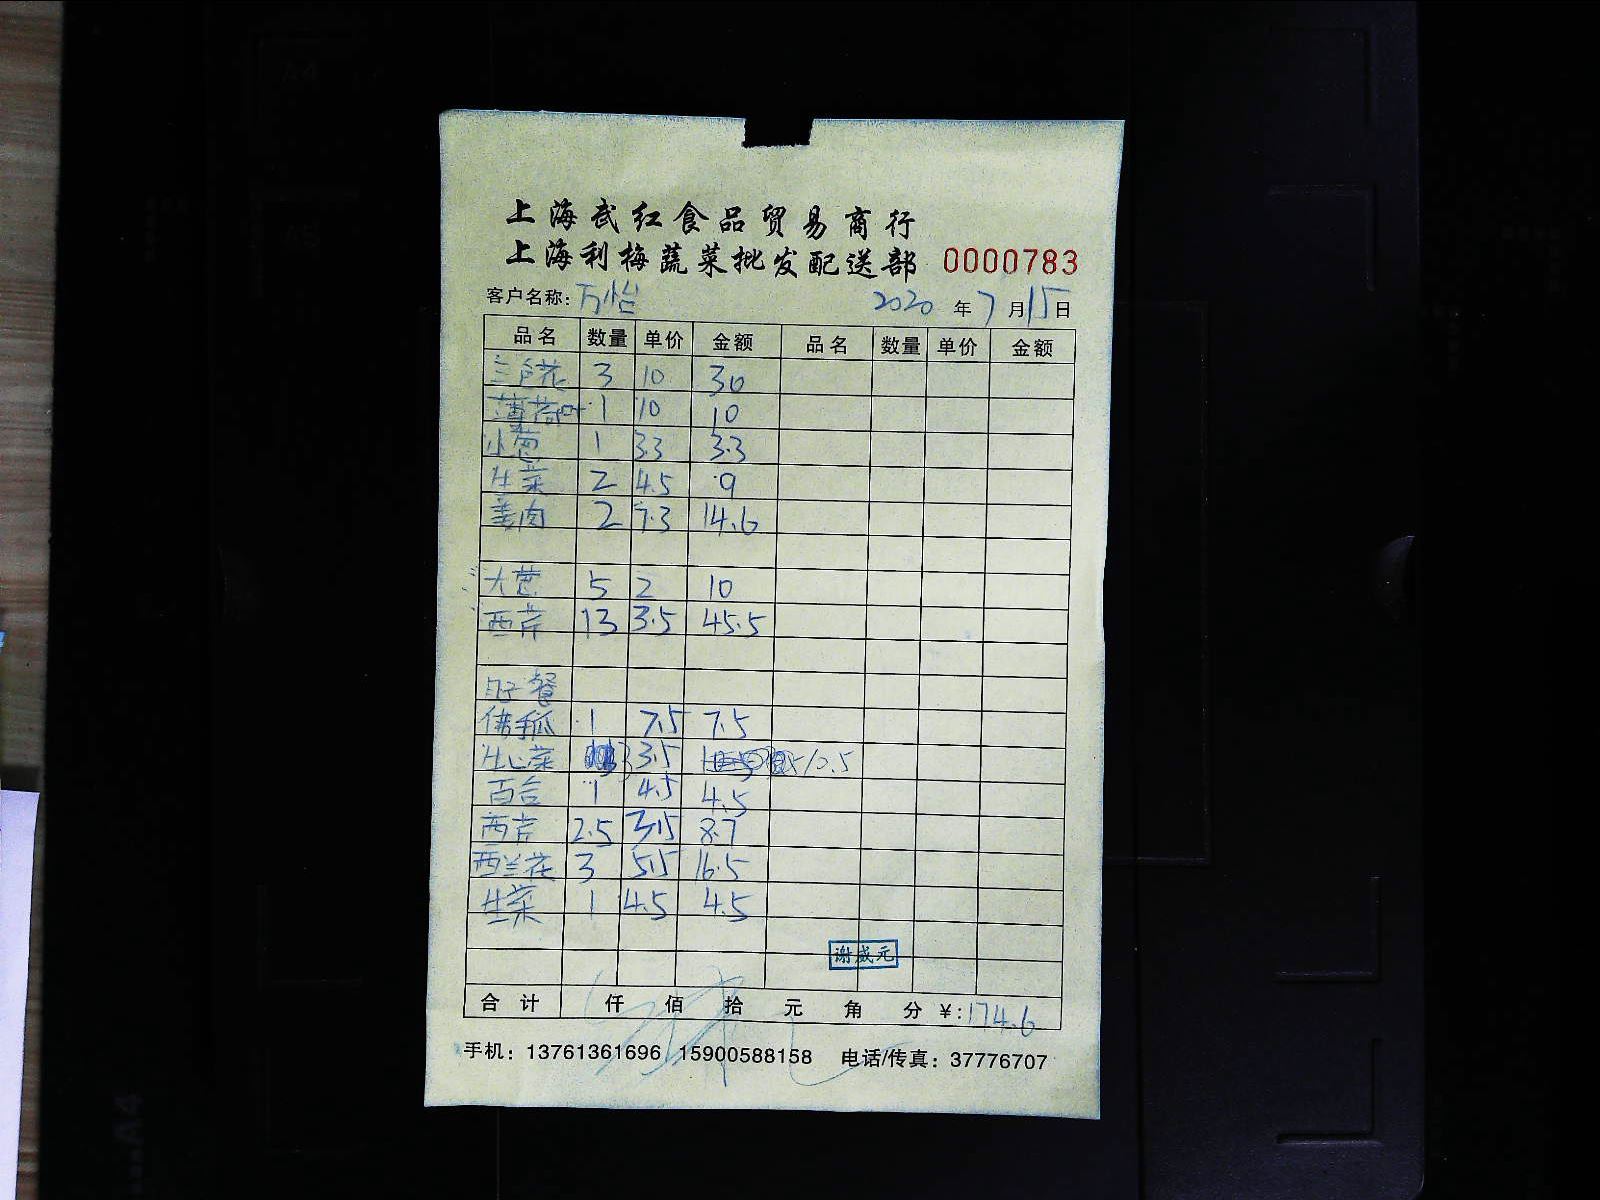 上海武红食品贸易商行
上海利梅蔬菜批发配送部 0000783
客户名称: 万怡 2020 年 7 月 15 日
品名 数量 单价 金额 品名 数量 单价 金额
三色花 3 10 30
薄荷叶 1 10 10
小葱 1 3.3 3.3
生菜 2 4.5 9
姜肉 2 7.3 14.6
大葱 5 2 10
西芹 13 3.5 45.5
餐
佛手瓜 1 7.5 7.5
菜 3 3.5 10.5
百合 1 4.5 4.5
西芹 2.5 3.5 8.7
西兰花 3 5.5 16.5
生菜 1 4.5 4.5
谢成元
合计 仟 佰 拾 元 角 分 ¥: 174.6
手机: 13761361696 15900588158 电话/传真: 37776707